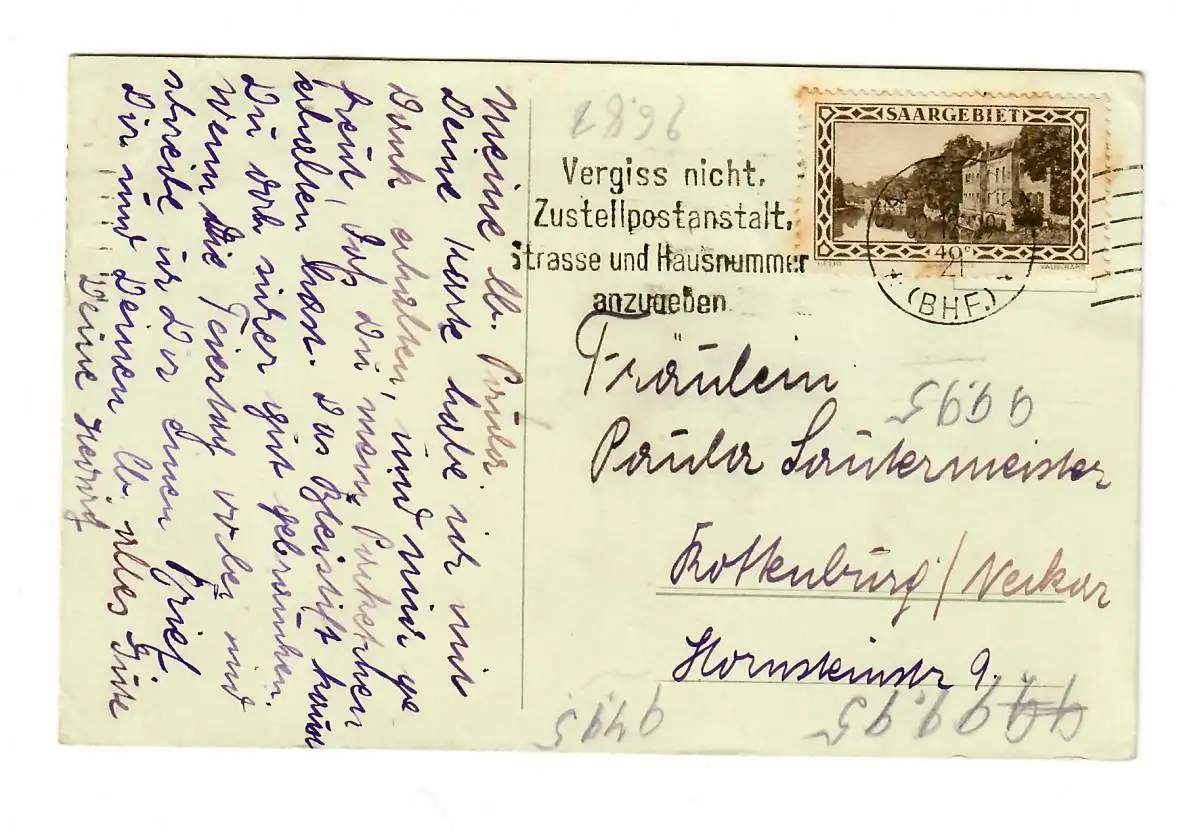 Meine lb. Paula.
Deine Karte habe ich mit
Dank erhalten, und mich ge
freut, daß Du mein Päckchen
erhalten hast. Das Bleistift kannst
Du doch sicher gut gebrauchen.
Wenn die Feiertag vorbei sind
schreibe ich Dir einen Brief.
Dir und Deinen lb. alles Gute
Deine Hedwig
2896
Vergiss nicht,
Zustellpostanstalt,
Strasse und Hausnummer
anzugeben.
SAARGEBIET
(BHF.)
Fräulein
Paula Sautermeister
Rottenburg/Neckar
Hornsteinstr 9.